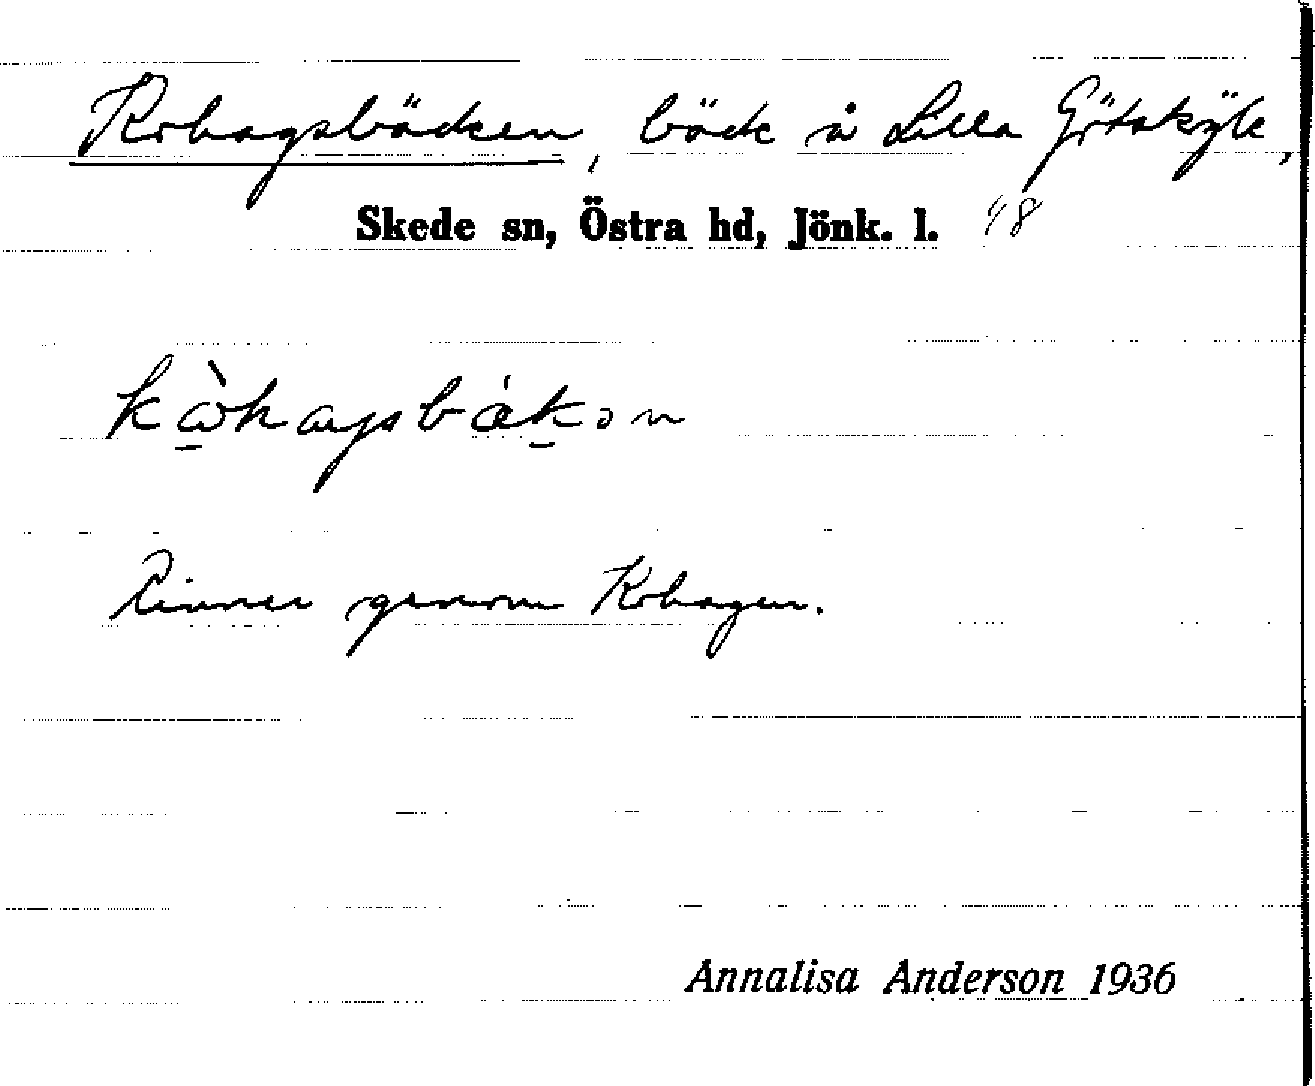 Kohagsbäcken, bäck å Lilla Götakyle,
Skede sn, Östra hd, Jönk. l. 48
Rinner genom Kohagen.
Annalisa Anderson 1936